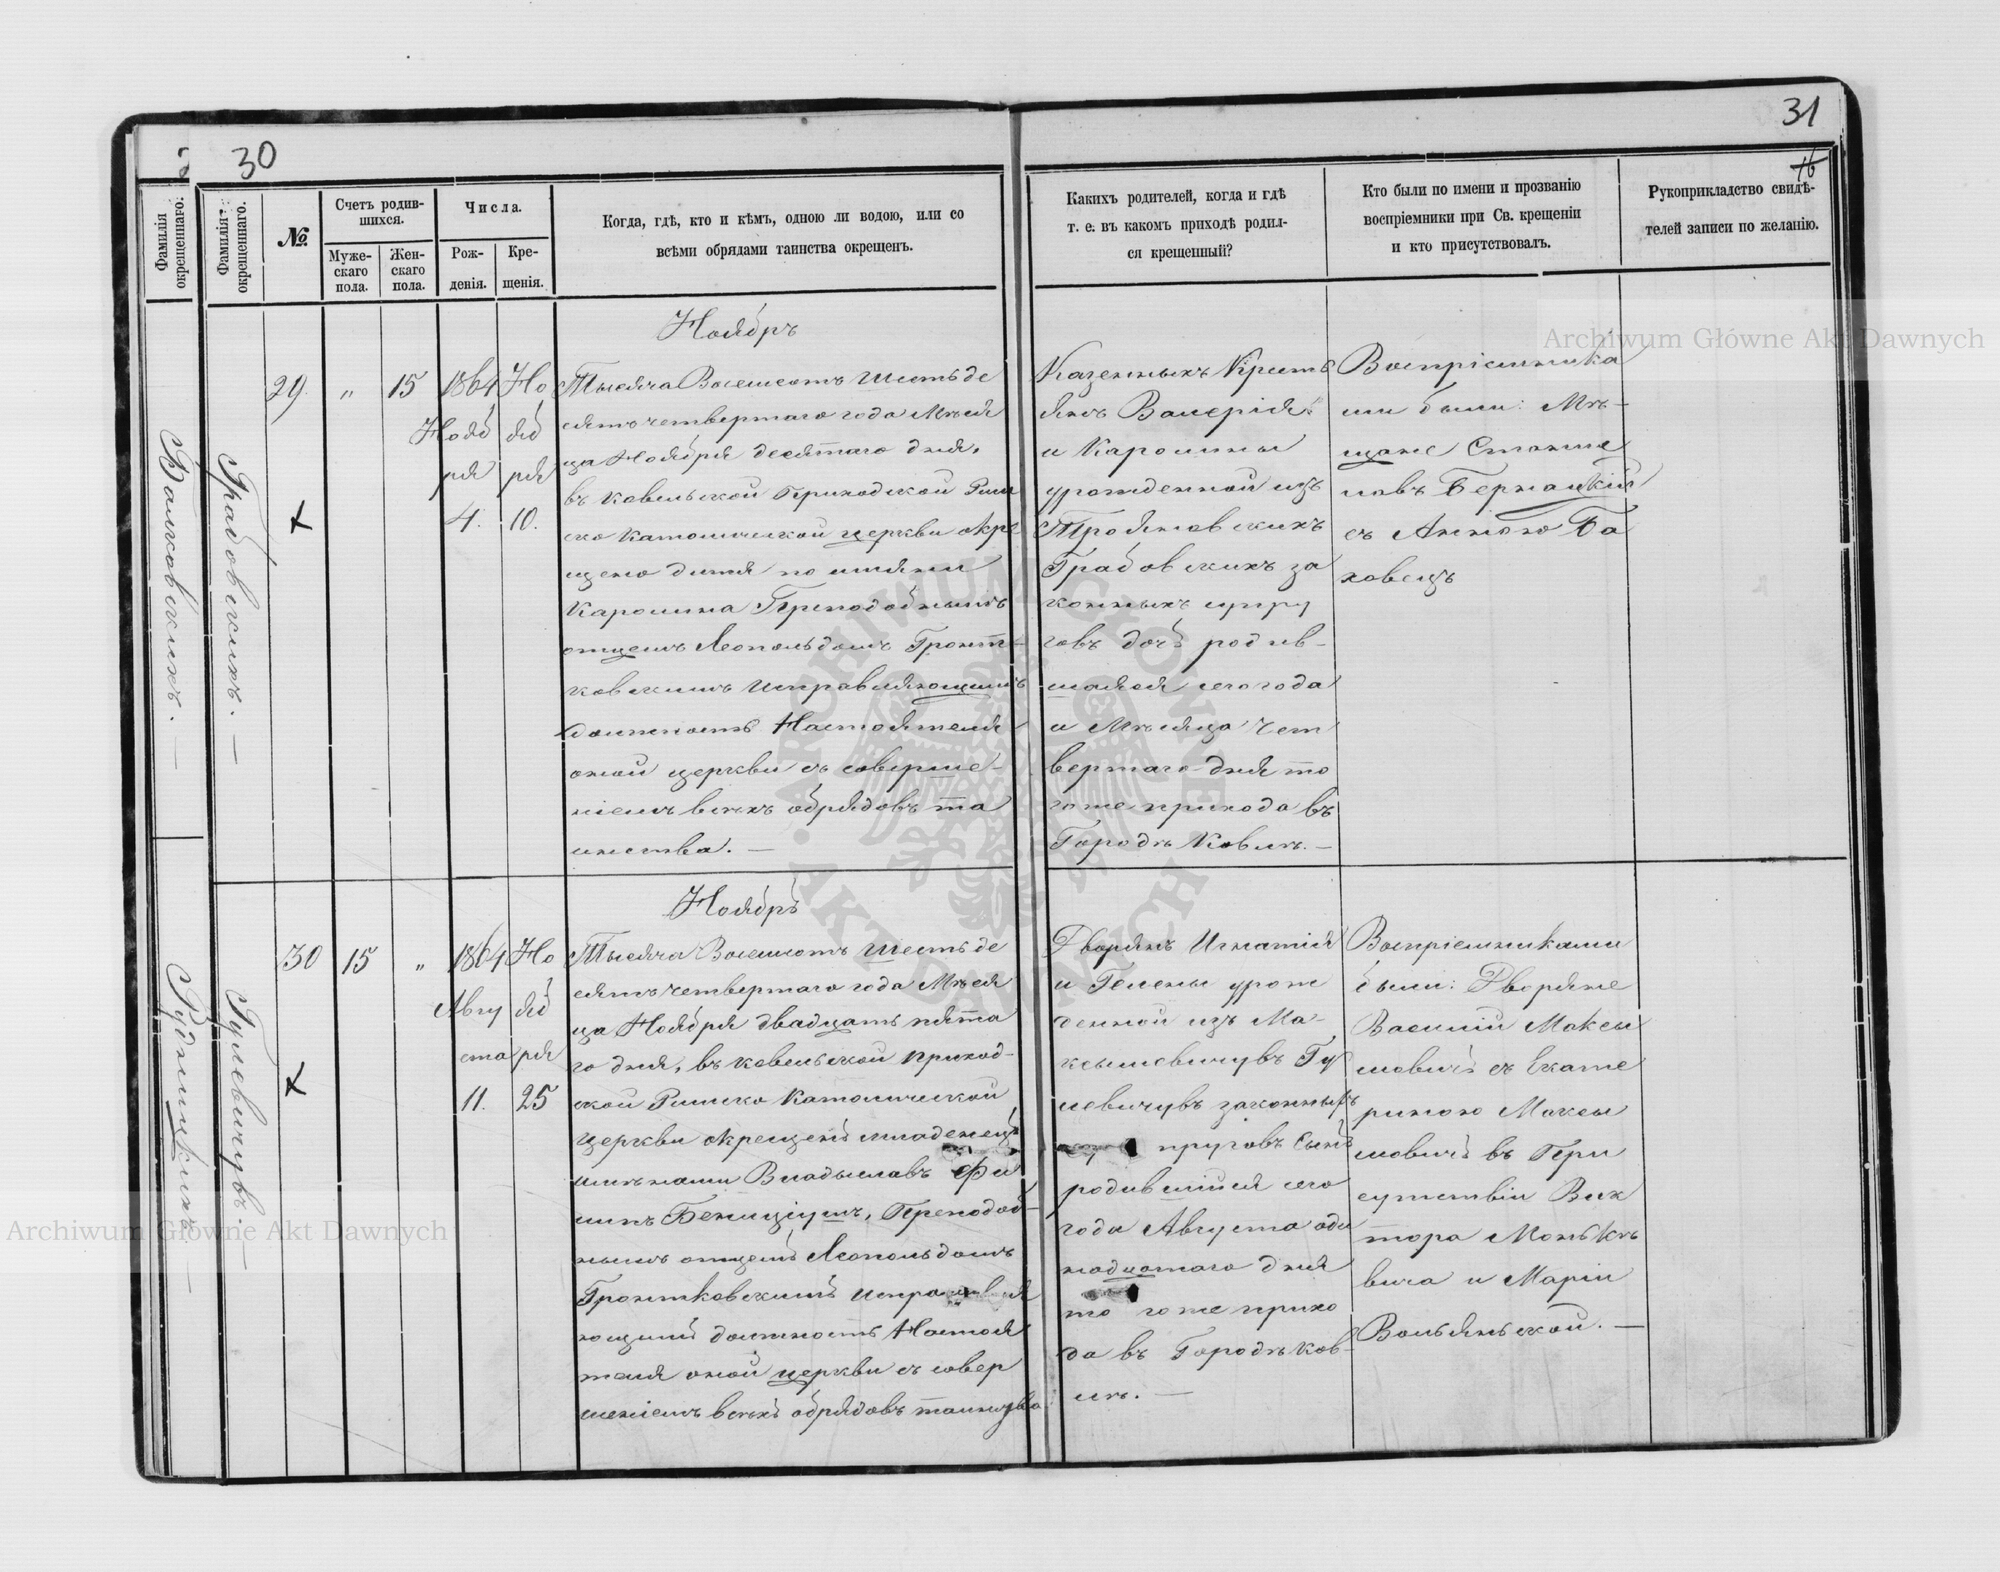 30
31
16
Фамилія окрещеннаго.
Фамилія окрещеннаго.
№
Счетъ родив-
шихся.
Муже-
скаго
пола.
Жен-
скаго
пола.
Числа.
Рож-
денія.
Кре-
щенія.
Когда, гдѣ, кто и кѣмъ, одною ли водою, или со
всѣми обрядами таинства окрещенъ.
Какихъ родителей, когда и гдѣ
т. е. въ какомъ приходѣ родил-
ся крещенный?
Кто были по имени и прозванію
воспріемники при Св. крещеніи
и кто присутствовалъ.
Рукоприкладство свидѣ-
телей записи по желанію.
Грабовскихъ. —
29.
„
15
1864
Нояб
ря
4.
Но
яб
ря
10.
Ноябрь
Тысяча Восемсотъ Шестьде
сятъ четвертаго года Мѣся
ца Ноября десятаго дня,
въ Ковельской Приходской Рим
ско Католической церкви окре
щено дитя по имяни
Каролина Преподобнымъ
отцемъ Леопольдомъ Гронт-
ковскимъ Исправляющимъ
должность Настоятеля
оной церкви съ соверше-
ніемъ всѣхъ обрядовъ та
инства. —
Казенныхъ Кресть
янъ Валерія
и Каролины
урожденной изъ
Трояновскихъ
Грабовскихъ за
конныхъ супру
говъ дочь родив-
шаяся сего года
и Мѣсяца Чет
вертаго дня то
гоже прихода въ
Городѣ Ковлѣ. —
Воспріемника
ми были: Мѣ-
щане Станис
лавъ Бернацкій
съ Анною Ба
ховецъ
Гулевичувъ. —
30
15
„
1864
Авгу
ста
11.
Но
яб
ря
25
Ноябрь
Тысяча Восемсотъ Шестьде
сятъ четвертаго года Мѣся
ца Ноября двадцать пята
го дня, въ Ковельской Приход-
ской Римско Католической
церкви окрещенъ младенецъ
имѣнами Владыславъ Фи
липъ Беницiушъ, Преподоб-
нымъ отцемъ Леопольдомъ
Гронтковскимъ Исправля
ющимъ должность Настоя
теля оной церкви съ совер
шеніемъ всѣхъ обрядовъ таинства
Дворянъ Игнатія
и Гелены урож
денной изъ Ма-
ксымевичувъ Гу
левичувъ законныхъ
супруговъ сынъ
родившійся сего
года Августа оди
надцатаго дня
то гоже прихо
да въ Городѣ Ков-
лѣ. —
Воспріемниками
были: Дворяне
Василій Максы
мовичъ съ Екате
риною Максы
мовичъ въ При
сутствіи Вик
тора Моньке
вича и Маріи
Вольянской. —
Archiwum Główne Akt Dawnych
Archiwum Główne Akt Dawnych
ARCHIWUM GŁÓWNE AKT DAWNYCH